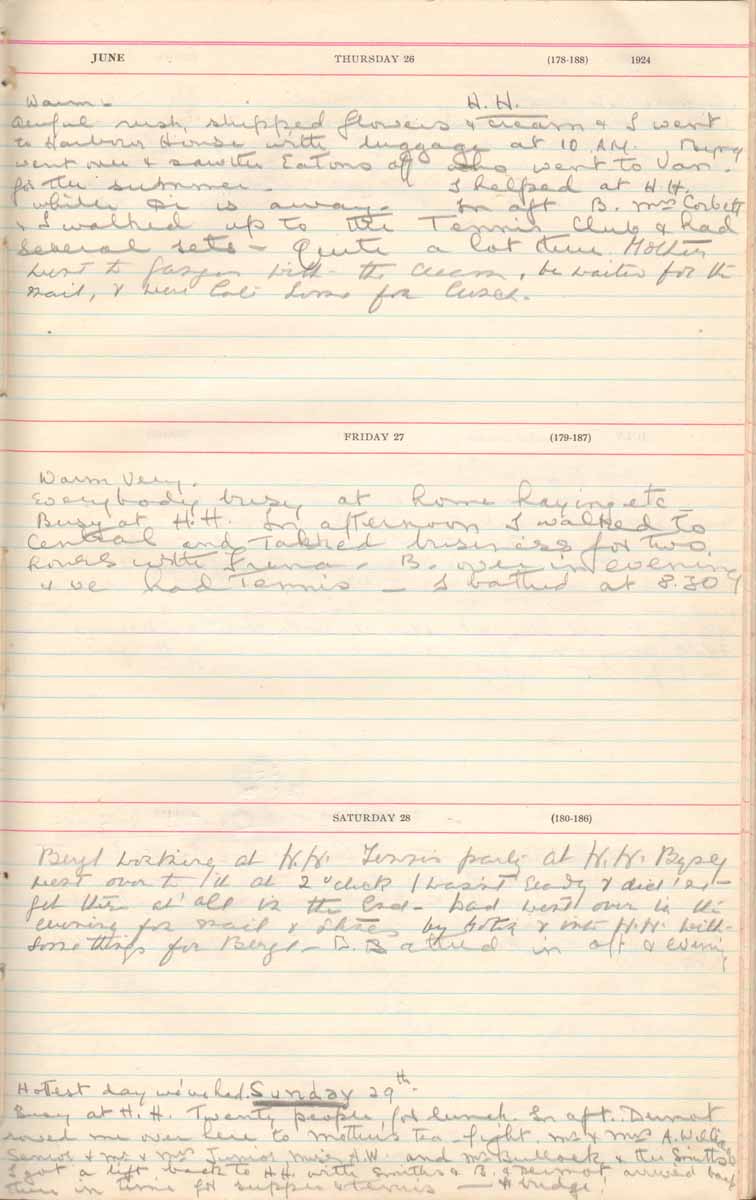 JUNE THURSDAY 26 (178-188) 1924
Warm - H. H.
Awful rush, shipped flowers & cream & I went
to Harbour House with luggage at 10 A.M.
went over & saw the Eatons off who went to Van.
for the summer. I helped at H.H.
while Di is away. In aft B. Mrs Corbett
& I walked up to the Tennis Club & had
several sets - Quite a lot there. Mother
went to Ganges with the cream, he waited for the
mail, & were home for lunch.
FRIDAY 27 (179-187)
Warm Very.
Everybody busy at home haying etc -
Busy at H.H. In afternoon I walked to
Central and Talked business for two
hours with - B. over in evening
& we had Tennis - I bathed at 8.30
SATURDAY 28 (180-186)
Beryl working at H.H. Tennis party at H.H.
went over to it at 2 o'clock I wasn't ready & did'nt
get there at all in the End - Dad went over in the
evening for mail & by & into H.H. with
some things for Beryl - B. Bathed in aft & evening
Hottest day we've had. Sunday 29th.
Busy at H.H. Twenty people for lunch. In aft. Dermot
rowed me over here to mother's tea-fight. Mr & Mrs A.
Senior & Mr & Mrs Junior, H.W. and Mr Bullock & the Smiths
I got a lift back to H.H. with Smiths & B. & Dermot arrived back
there in time for supper & tennis - & bridge